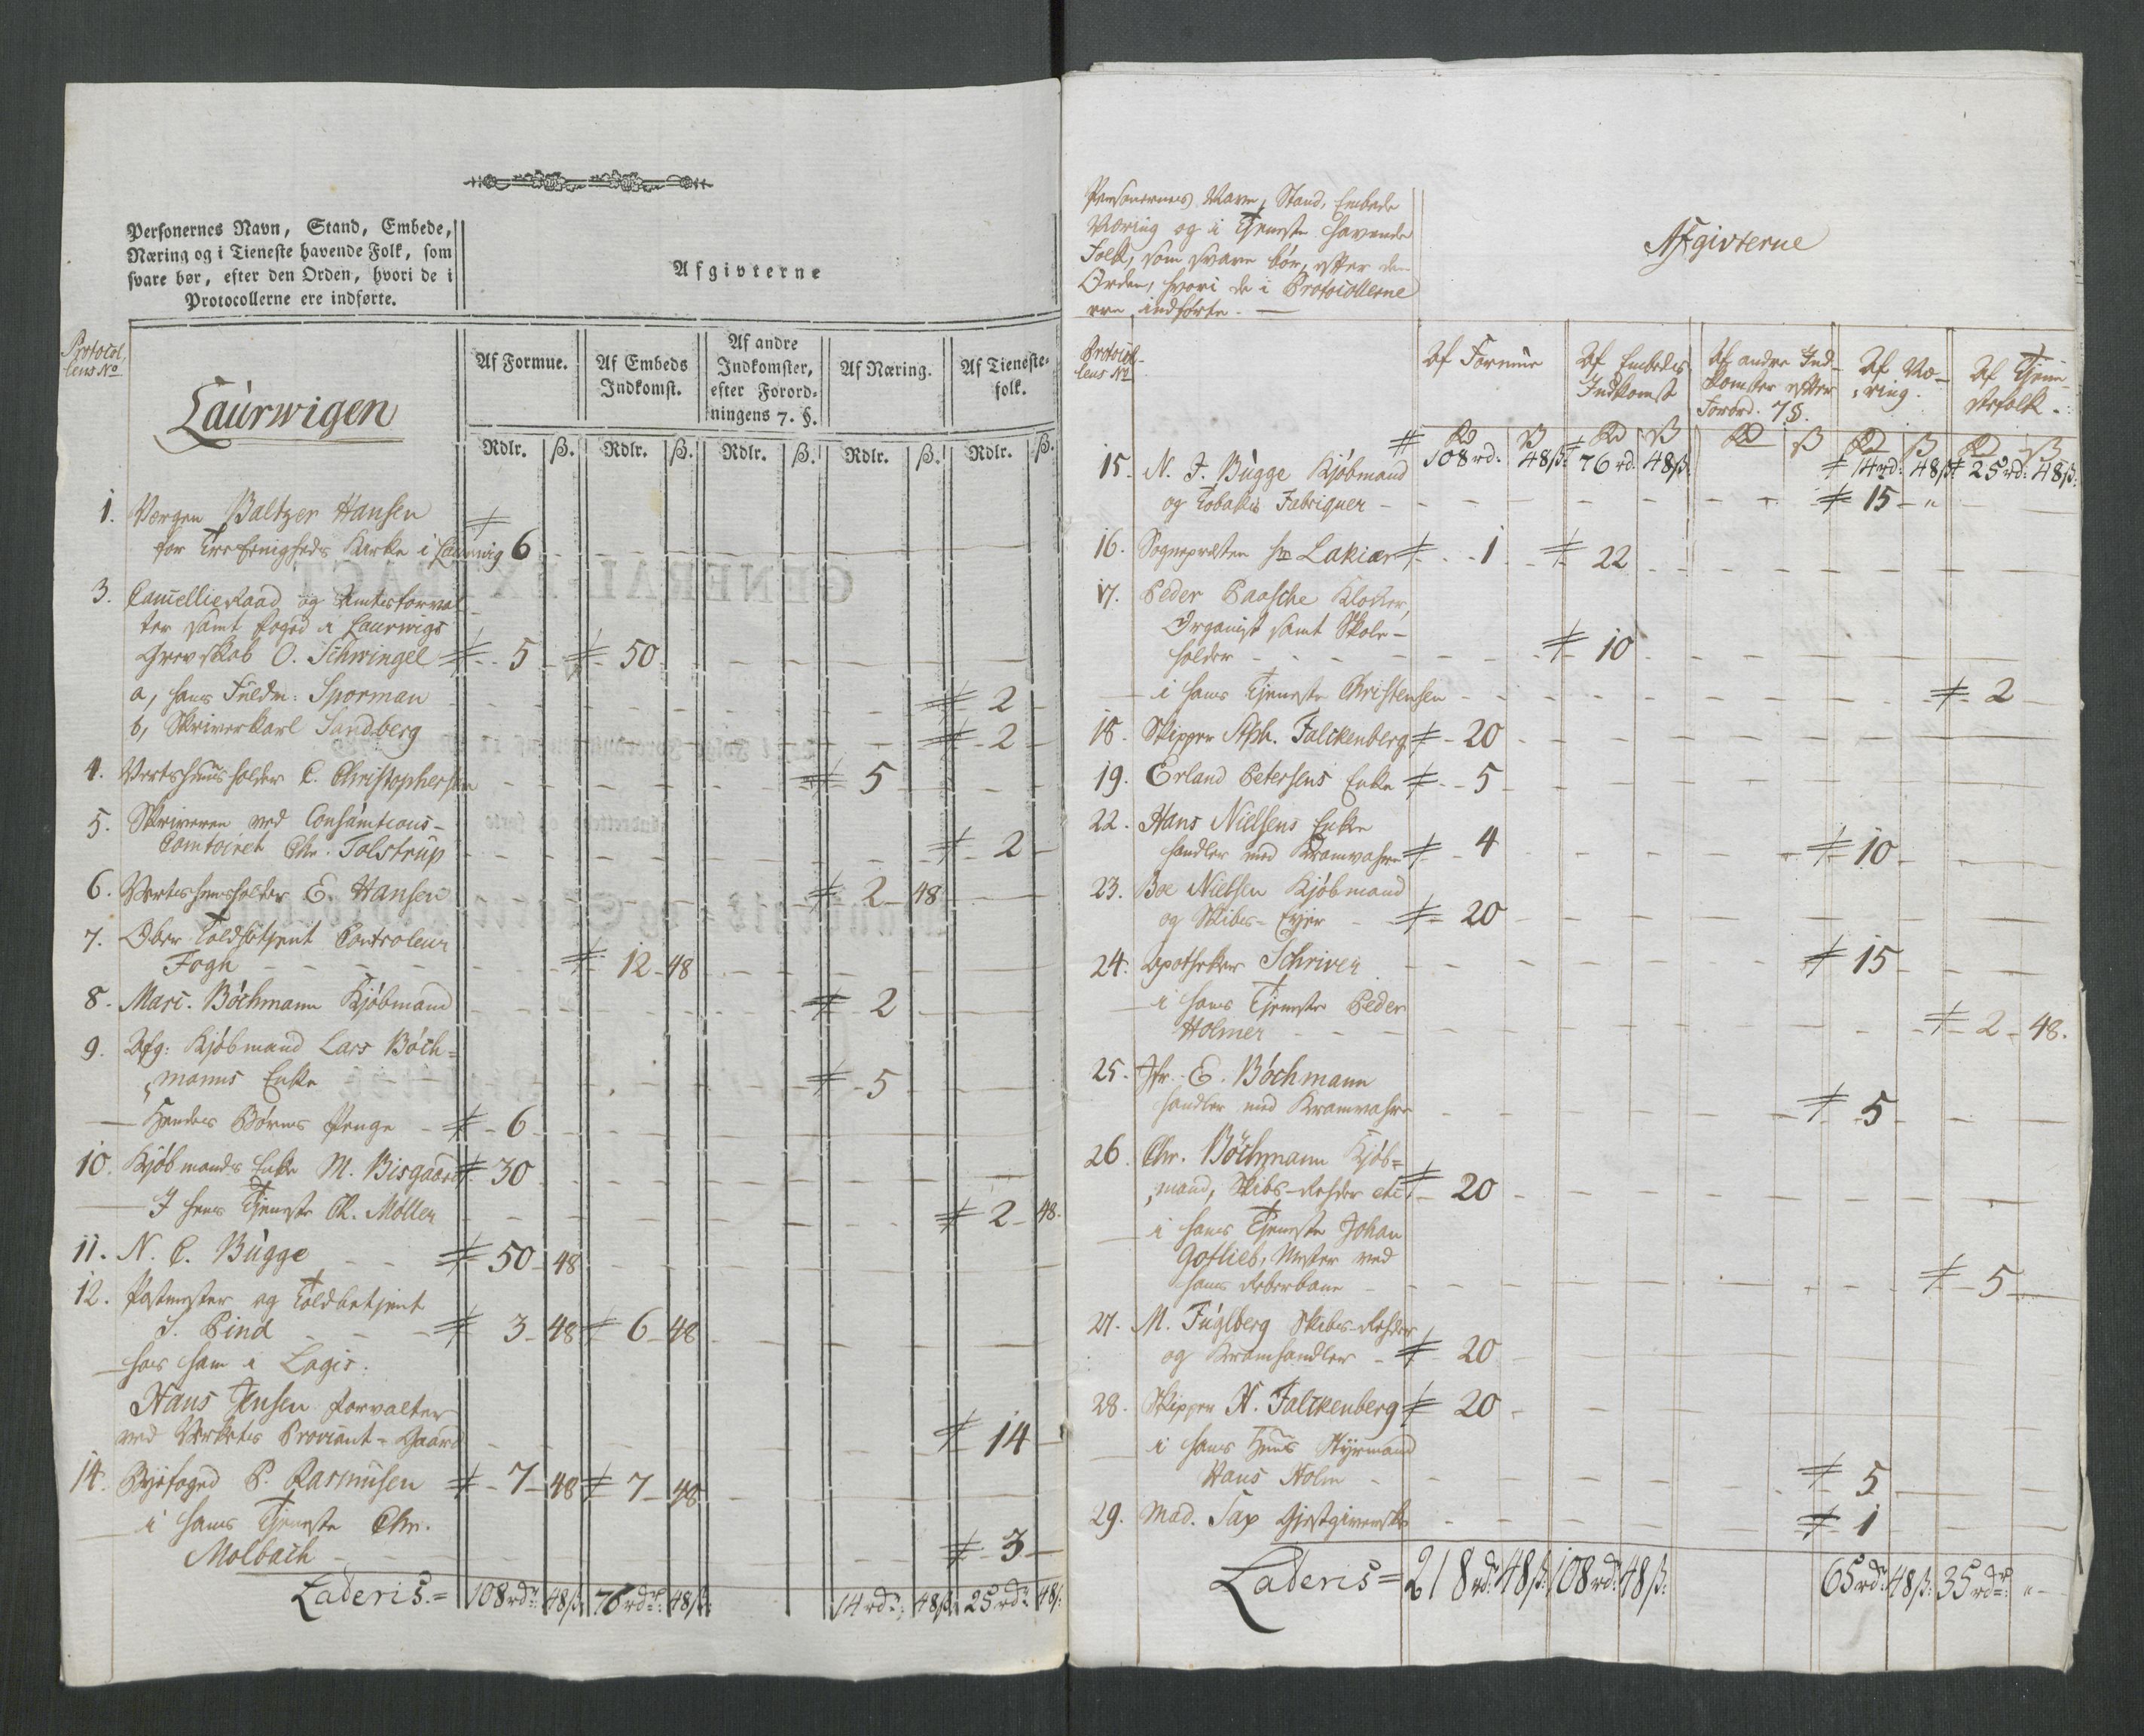 Personernes Navn, Stand, Embede,
Næring og i Tieneste havende Folk, som
svare bør, efter den Orden, hvori de i
Protocollerne ere indførte.
Afgivterne
Protocol,
lens No
Laurwigen
Af Formue.
Af Embeds
Indkomst.
Af andre
Indkomster,
efter Forord-
ningens 7. §.
Af Næring.
Af Tieneste-
folk.
Rdlr. ß. Rdlr. ß. Rdlr. ß. Rdlr. ß. Rdlr. ß.
1. Værgen Baltzer Hansen
for Trefoenigheds Kirke i Laurwig 6
3. Cancellieraad og Amtsforval
ter samt foged i Laurwigs
Grevskab O. Schwingel 5 50
a, hans Fuldm: Sporman 2
b, Skriverkarl Sandberg 2
4. Vertshuusholder C. Christophersen 5
5. Skriveren ved Consumtions-
Comtoiret Chr. Tolstrup 2
6. Vertshuusholder E. Hansen 2 48
7. Ober Toldbetjent Controleur
Fogh 12 48
8. Marc. Böchmann Kjöbmand 2
9. Afg: Kjöbmand Lars Böch=
manns Enke 5
Hendes Börns Penge 6
10. Kjöbmands Enke M. Bisgaard 30
I hens Tjeneste Ch. Möller 2 48.
11. N. C. Bugge 50 48
12. Postmester og Toldbetjent
S. Pind 3 48 6 48
hos ham i Logis:
Hans Jensen forvalter
ved Verkets Proviant-Gaard 14
14. Byefoged P. Rasmusen 7 48 7 48
i hans Tjeneste Chr.
Molbach 3
Lateris = 108 rdr 48 ß: 76 rdr: 48 ß: 14 rdr: 48 ß: 25 rdr 48 ß:
Personernes Navn, Stand, Embede
Næring og i Tjeneste havende
Folk, som svare bör, efter den
Orden, hvori de i Protocollerne
ere indförte.
Afgivterne
Protocol-
lens No
Af Formue
Af Embeds
Indkomst
Af andre Ind-
komster efter
Forord. 7 §.
Af Næ-
ring.
Af Tjene-
stefolk.
Rd ß Rd ß Rd ß Rd ß Rd ß
108 rd: 48 ß: 76 rd: 48 ß: 14 rd: 48 ß: 25 rd: 48 ß:
15. N. J. Bugge Kjöbmand
og Tobaks Fabriquer 15
16. Sognepræsten Hr Lakiær 1 22
17. Peder Paasche Klokker,
Organist samt Skole-
holder 10
i hans Tjeneste Christensen 2
18. Skipper Steph. Falckenberg 20
19. Erland Petersens Enke 5
22. Hans Nielsens Enke
handler med Kramvahre 4 10
23. Boe Nielsen Kjöbmand
og Skibs-Eyer 20
24. Apotheker Schriver 15
i hans Tjeneste Peder
Holmer 2 48.
25. Jfr. E. Böchmann
handler med Kramvahre 5
26. Chr. Böchmann Kjöb=
mand, Skibs-Rehder etc 20
i hans Tjeneste Johan
Gotlieb, Mester ved
hans Reberbane 5
27. M. Fuglberg Skibs-Rehder
og Kramhandler 20
28. Skipper N. Falckenberg 20
i hans Huus Styrmand
Hans Holm 5
29. Mad. Sax Gjestgiverske 1
Lateris = 218 rd: 48 ß: 108 rdr: 48 ß: 65 rdr: 48 ß: 35 rdr: